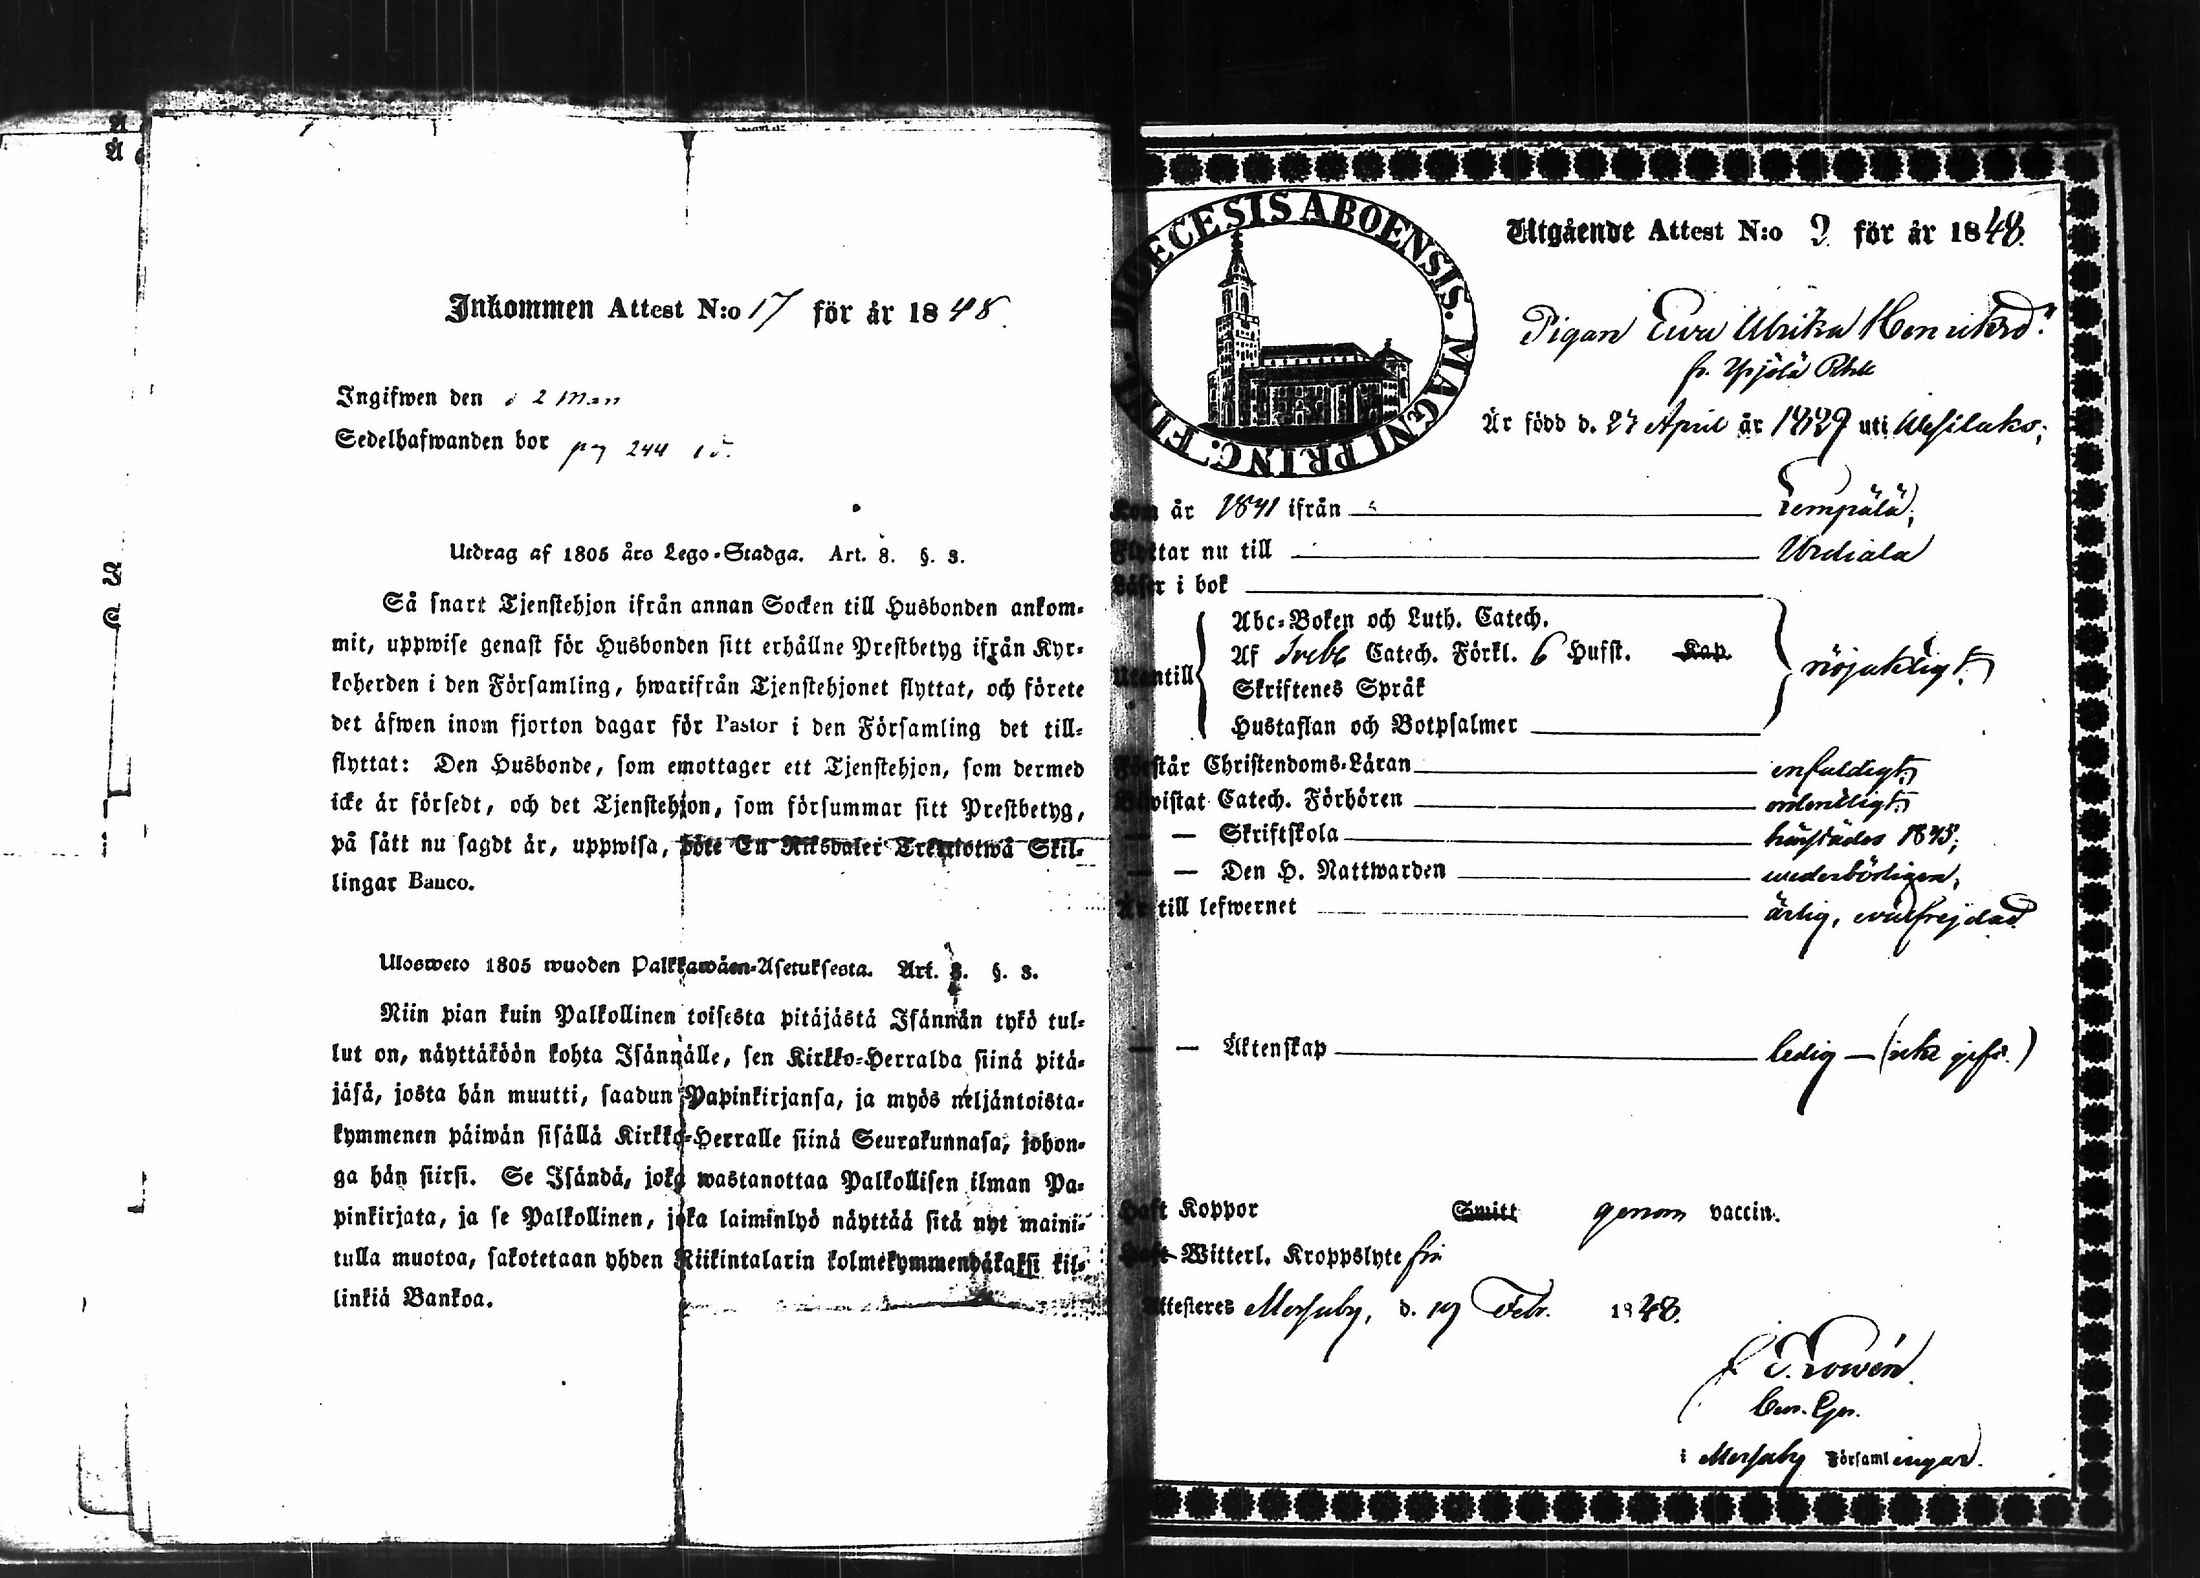 Inkommen Attest N:o 17 för år 1848.
Ingifwen den 2 Mars
Sedelhafwanden bor pg 244
Utdrag af 1805 års Lego-Stadga. Art. 8. §. 3.
Så snart Tjenstehjon ifrån annan Socken till Husbonden ankom-
mit, uppwise genast för Husbonden sitt erhållne Prestbetyg ifrån Kyr-
koherden i den Församling, hwarifrån Tjenstehjonet flyttat, och förete
det äfwen inom fjorton dagar för Pastor i den Församling det till-
flyttat: Den Husbonde, som emottager ett Tjenstehjon, som dermed
icke är försedt, och det Tjenstehjon, som försummar sitt Prestbetyg,
på sätt nu sagdt är, uppwisa, böte En Riksdaler Trettiotwå Skil-
lingar Banco.
Ulosweto 1805 wuoden Palkkawäen-Asetuksesta. Art. 8. §. 3.
Niin pian kuin Palkollinen toisesta pitäjästä Isännän tykö tul-
lut on, näyttäköön kohta Isännälle, sen Kirkko-Herralda siinä pitä-
jäsä, josta hän muutti, saadun Papinkirjansa, ja myös neljäntoista-
kymmenen päiwän sisällä Kirkko-Herralle siinä Seurakunnasa, johon-
ga hän siirsi. Se Isändä, joka wastanottaa Palkollisen ilman Pa-
pinkirjata, ja se Palkollinen, joka laiminlyö näyttää sitä nyt maini-
tulla muotoa, sakotetaan yhden Riikintalarin kolmekymmendäkaksi kil-
linkiä Bankoa.
DIOECESIS ABOENSIS. MAGNI PRINC. FINL.
Utgående Attest N:o 9 för år 1848.
Pigan Ewa Ulrika Henriksd:r
fr. Ypjölä Rhk
Är född d. 27 April år 1829 uti Wesilaks;
Kom år 1841 ifrån Lempälä;
Flyttar nu till Urdiala
Läser i bok
Abc-Boken och Luth. Catech.
Utantill Af Sveb. Catech. Förkl. 6 Hufst. Kap. nöjaktligt;
Skriftenes Språk
Hustaflan och Botpsalmer
Förstår Christendoms-Läran enfaldigt;
Bewistat Catech. Förhören ordentligt;
— — Skriftskola härstädes 1845;
— — Den H. Nattwarden wederbörligen;
Är till lefwernet ärlig, wälfrejdad
— — Äktenskap ledig — (icke gift.)
Haft Koppor Smitt genom vaccin.
Haft Witterl. Kroppslyte fri
Attesteres Messuby, d. 19 Febr. 1848.
Cur. Ger.
i Messuby Församlingar.